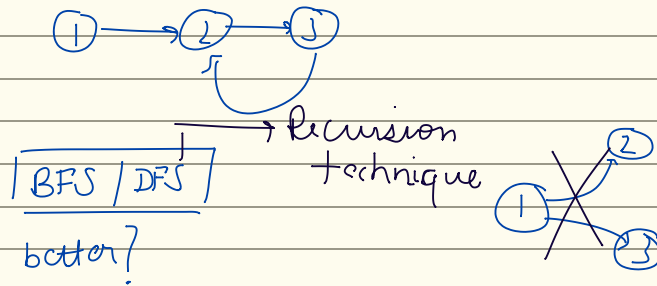 1 2 3
Recursion
technique
BFS / DFS
better?
1 2
3